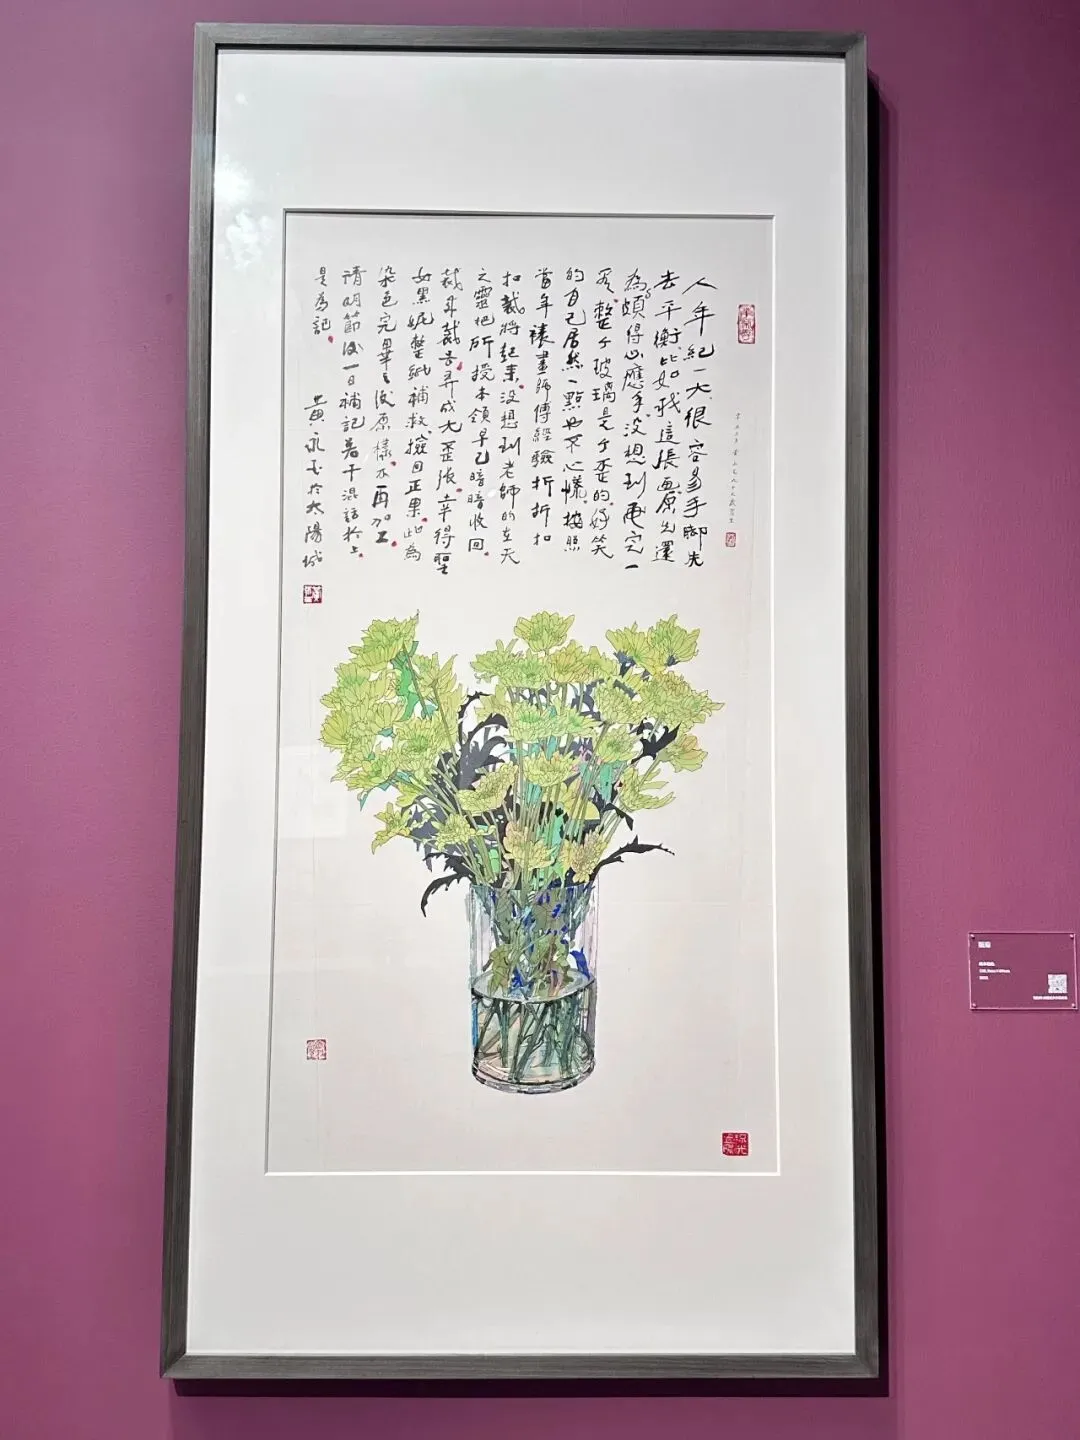 人年紀一大很容易手腳失
去平衡比如我這張畫原先還
為頗得心應手沒想到画完一
看整个玻璃是个歪的好笑
的自己居然一點也不心慌按照
當年裱畫師傅經驗折折扣
扣裁將起來沒想到老師的在天
之靈把所授本領早已暗暗收回
裁來裁去弄成大歪張幸得
女黑妮整紙補救撿回正果此為
染色完畢之後原樣不再加工
清明節後一日補記若干混話於上
是為記
黃永玉於太陽城